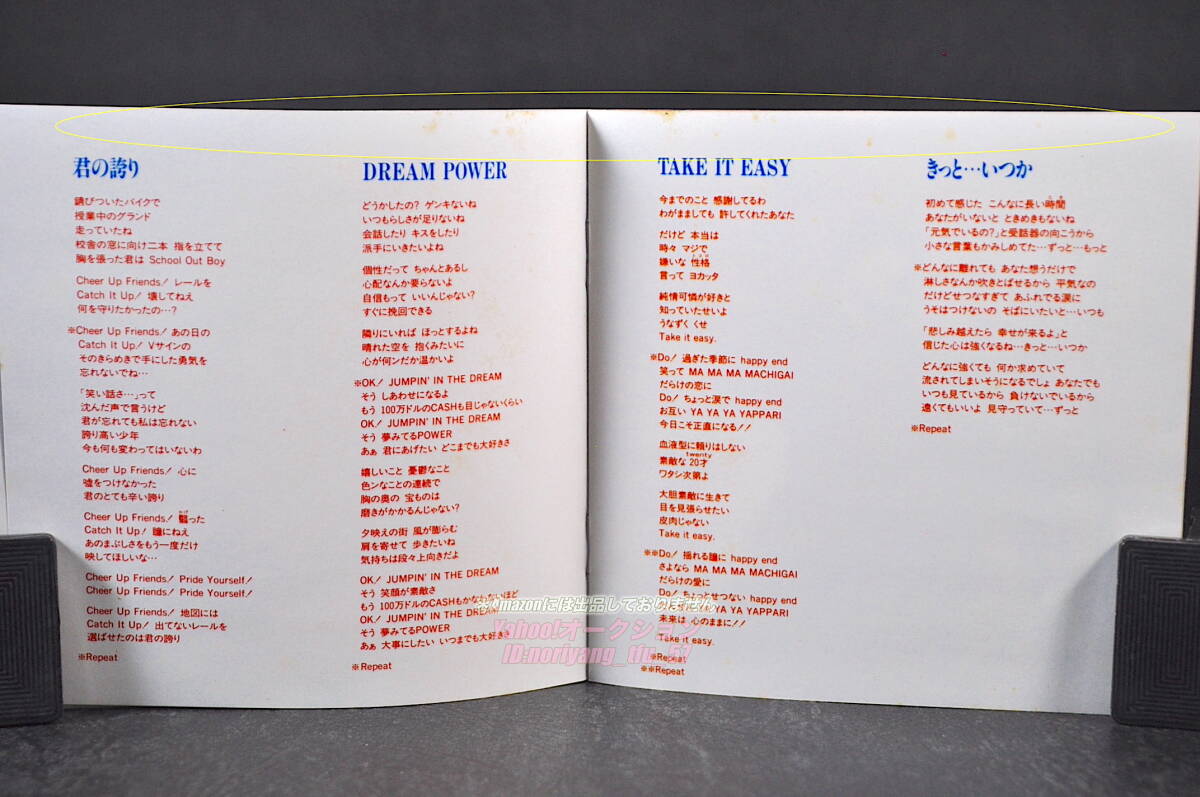 君の誇り
錆びついたバイクで
授業中のグランド
走っていたね
校舎の窓に向け二本 指を立てて
胸を張った君は School Out Boy
Cheer Up Friends! レールを
Catch It Up! 壊してねえ
何を守りたかったの…?
※Cheer Up Friends! あの日の
Catch It Up! Vサインの
そのきらめきで手にした勇気を
忘れないでね…
「笑い話さ…」って
沈んだ声で言うけど
君が忘れても私は忘れない
誇り高い少年
今も何も変わってはいないわ
Cheer Up Friends! 心に
嘘をつけなかった
君のとても辛い誇り
Cheer Up Friends! 翳った
Catch It Up! 瞳にねえ
あのまぶしさをもう一度だけ
映してほしいな…
Cheer Up Friends! Pride Yourself!
Cheer Up Friends! Pride Yourself!
Cheer Up Friends! 地図には
Catch It Up! 出てないレールを
選ばせたのは君の誇り
※Repeat
DREAM POWER
どうかしたの? ゲンキないね
いつもらしさが足りないね
会話したり キスをしたり
派手にいきたいよね
個性だって ちゃんとあるし
心配なんか要らないよ
自信もって いいんじゃない?
すぐに挽回できる
隣りにいれば ほっとするよね
晴れた空を 抱くみたいに
心が何だか温かいよ
※OK! JUMPIN' IN THE DREAM
そう しあわせになるよ
もう 100万ドルのCASHも目じゃないくらい
OK! JUMPIN' IN THE DREAM
そう 夢みてるPOWER
あぁ 君にあげたい どこまでも大好きさ
嬉しいこと 憂鬱なこと
色ンなことの連続で
胸の奥の 宝ものは
磨きがかかるんじゃない?
夕映えの街 風が膨らむ
肩を寄せて 歩きたいね
気持ちは段々上向きだよ
OK! JUMPIN' IN THE DREAM
そう 笑顔が素敵さ
もう 100万ドルのCASHもかなわないほど
OK! JUMPIN' IN THE DREAM
そう 夢みてるPOWER
あぁ 大事にしたい いつまでも大好きさ
※Repeat
TAKE IT EASY
今までのこと 感謝してるわ
わがまましても 許してくれたあなた
だけど 本当は
時々 マジで
嫌いな 性格
言って ヨカッタ
純情可憐が好きと
知っていたせいよ
うなずく くせ
Take it easy.
※Do! 過ぎた季節に happy end
笑って MA MA MA MACHIGAI
だらけの恋に
Do! ちょっと涙で happy end
お互い YA YA YA YAPPARI
今日こそ正直になる!!
血液型に頼りはしない
twenty
素敵な 20才
ワタシ次第よ
大胆素敵に生きて
目を見張らせたい
皮肉じゃない
Take it easy.
※※Do! 揺れる瞳に happy end
さよなら MA MA MA MACHIGAI
だらけの愛に
Do! ちょっとせつない happy end
YA YA YA YAPPARI
未来は 心のままに!!
Take it easy.
※Repeat
※※Repeat
きっと…いつか
初めて感じた こんなに長い時間
あなたがいないと ときめきもないね
「元気でいるの?」と受話器の向こうから
小さな言葉もかみしめてた…ずっと…もっと
※どんなに離れても あなた想うだけで
淋しさなんか吹きとばせるから 平気なの
だけどせつなすぎて あふれでる涙に
うそはつけないの そばにいたいと…いつも
「悲しみ越えたら 幸せが来るよ」と
信じた心は強くなるね…きっと…いつか
どんなに強くても 何か求めていて
流されてしまいそうになるでしょ あなたでも
いつも見ているから 負けないでいるから
遠くてもいいよ 見守っていて…ずっと
※Repeat
※Amazonには出品しておりません
Yahoo!オークション
ID:noriyang_tfu_57